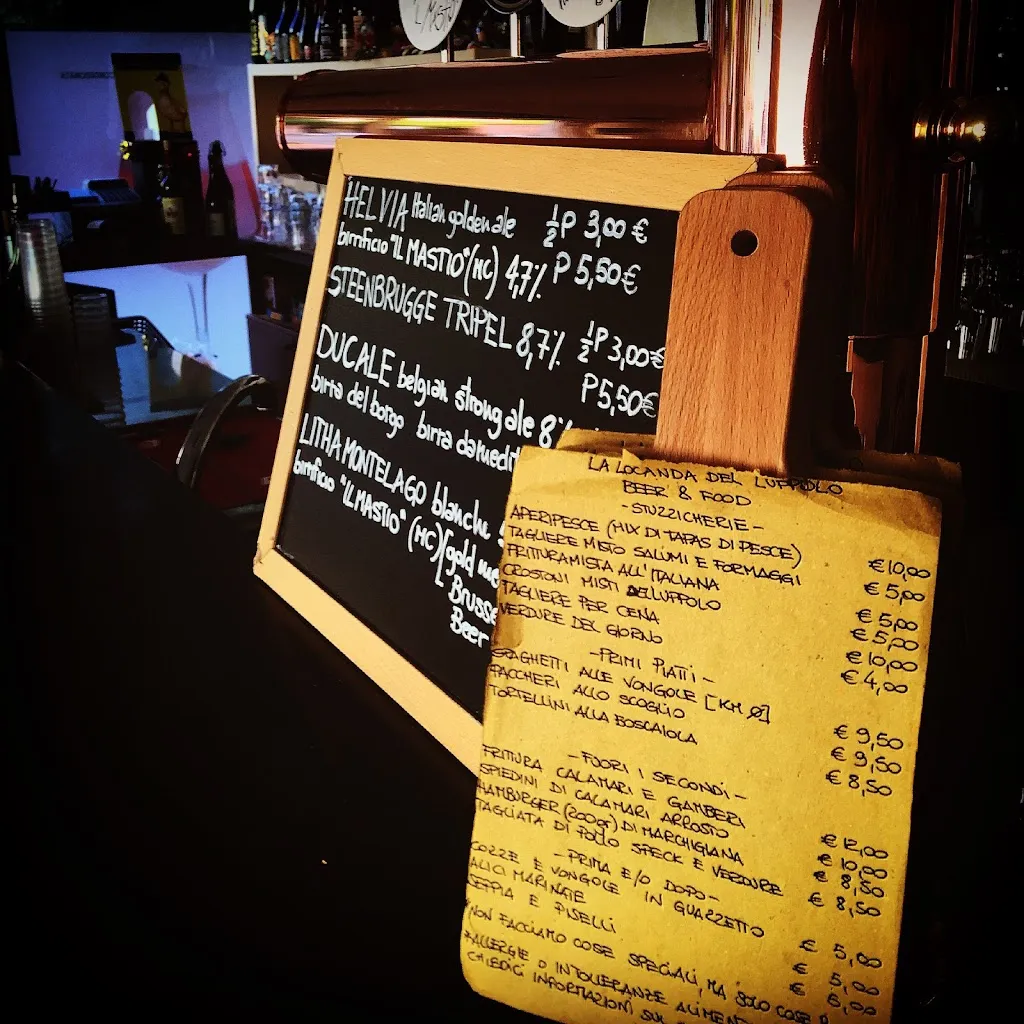 HELVIA Italian golden ale ½P 3,00 €
birrificio "IL MASTIO" (MC) 4,7% P 5,50€
STEENBRUGGE TRIPEL 8,7% ½P 3,00€
P 5,50€
DUCALE belgian strong ale 8%
birra del borgo birra da
LITHA MONTELAGO blanche
birrificio "IL MASTIO" (MC) [gold
Brusse
Beer
LA LOCANDA DEL LUPPOLO
BEER & FOOD
- STUZZICHERIE -
APERIPESCE (MIX DI TAPAS DI PESCE) €10,00
TAGLIERE MISTO SALUMI E FORMAGGI € 5,00
FRITTURA MISTA ALL'ITALIANA € 5,00
CROSTONI MISTI DEL LUPPOLO € 5,00
TAGLIERE PER CENA € 10,00
VERDURE DEL GIORNO € 4,00
- PRIMI PIATTI -
SPAGHETTI ALLE VONGOLE [KM Ø] € 9,50
PACCHERI ALLO SCOGLIO € 9,50
TORTELLINI ALLA BOSCAIOLA € 8,50
- FUORI I SECONDI -
FRITURA CALAMARI E GAMBERI € 12,00
SPIEDINI DI CALAMARI ARROSTO € 10,00
HAMBURGER (200gr) DI MARCHIGIANA € 8,50
TAGLIATA DI POLLO SPECK E VERDURE € 8,50
- PRIMA E/O DOPO -
COZZE E VONGOLE IN GUAZZETTO € 5,00
ALICI MARINATE € 5,00
SEPPIA E PISELLI € 6,00
"NON FACCIAMO COSE SPECIALI, MA SOLO COSE
*ALLERGIE O INTOLLERANZE
CHIEDICI INFORMAZIONI SUL